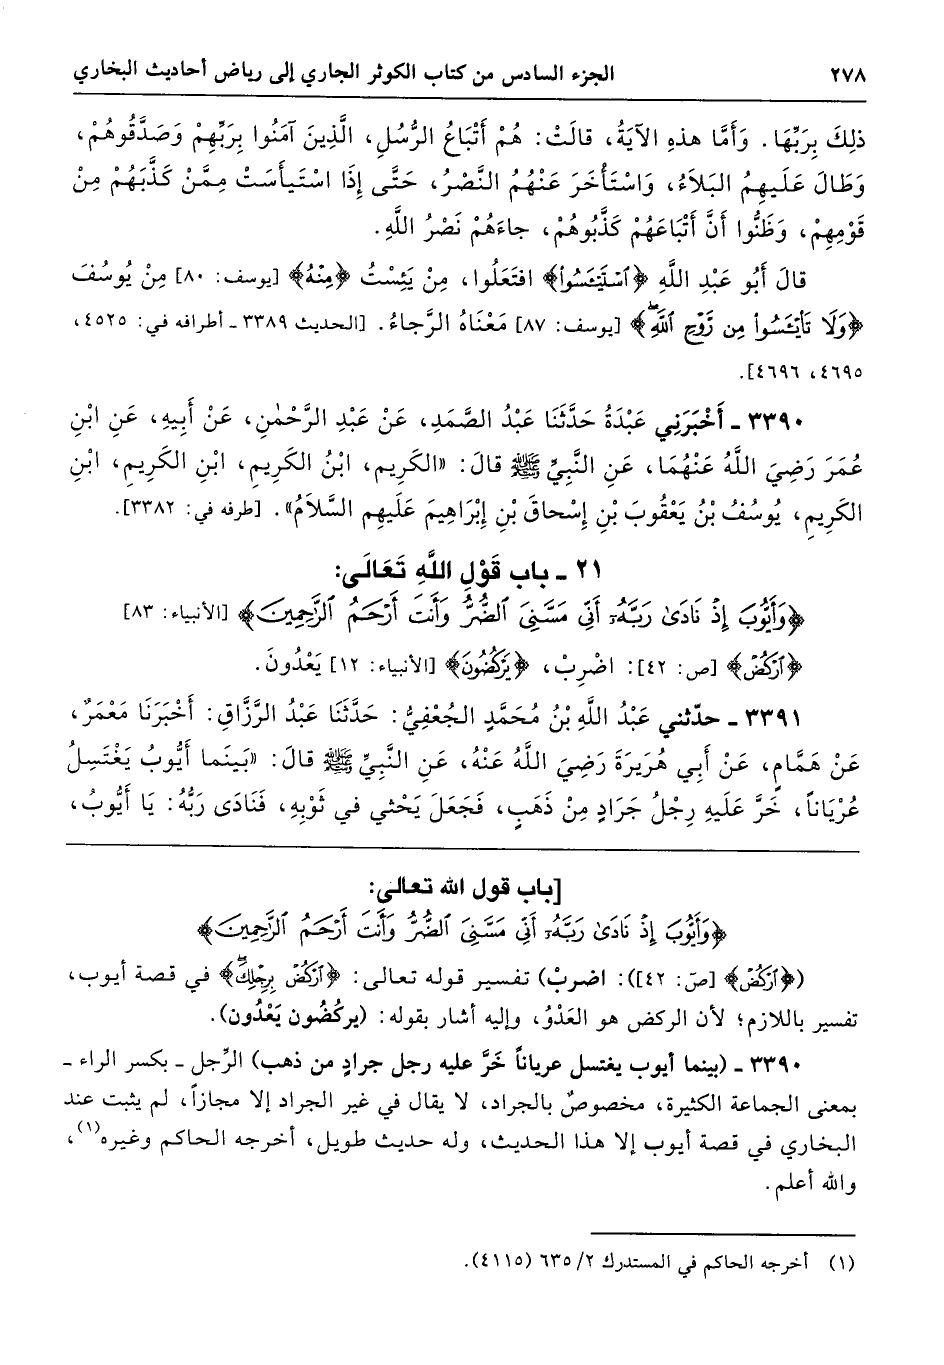 ٢٧٨ الجزء السادس من كتاب الكوثر الجاري إلى رياض أحاديث البخاري
ذلِكَ بِرَبِّهَا. وَأَمَّا هذهِ الآيَةُ، قالَتْ: هُمْ أَتْبَاعُ الرُّسُلِ، الَّذِينَ آمَنُوا بِرَبِّهِمْ وَصَدَّقُوهُمْ،
وَطَالَ عَلَيهِمُ البَلَاءُ، وَاسْتَأْخَرَ عَنْهُمُ النَّصْرُ، حَتَّى إِذَا اسْتَيأَسَتْ مِمَّنْ كَذَّبَهُمْ مِنْ
قَوْمِهِمْ، وَظَنُّوا أَنَّ أَتْبَاعَهُمْ كَذَّبُوهُمْ، جاءَهُمْ نَصْرُ اللَّهِ.
قالَ أَبُو عَبْدِ اللَّهِ ﴿ٱسْتَيْـَٔسُوا۟﴾ افتَعَلُوا، مِنْ يَئِسْتُ ﴿مِنْهُ﴾ [يوسف: ٨٠] مِنْ يُوسُفَ
﴿وَلَا تَا۟يْـَٔسُوا۟ مِن رَّوْحِ ٱللَّهِ﴾ [يوسف: ٨٧] مَعْنَاهُ الرَّجاءُ. [الحديث ٣٣٨٩ ـ أطرافه في: ٤٥٢٥،
٤٦٩٥، ٤٦٩٦].
٣٣٩٠ ـ أَخْبَرَنِي عَبْدَةُ حَدَّثَنَا عَبْدُ الصَّمَدِ، عَنْ عَبْدِ الرَّحْمٰنِ، عَنْ أَبِيهِ، عَنِ ابْنِ
عُمَرَ رَضِيَ اللَّهُ عَنْهُمَا، عَنِ النَّبِيِّ ﷺ قالَ: «الكَرِيمِ، ابْنُ الكَرِيمِ، ابْنِ الكَرِيمِ، ابْنِ
الكَرِيمِ، يُوسُفُ بْنُ يَعْقُوبَ بْنِ إِسْحاقَ بْنِ إِبْرَاهِيمَ عَلَيهِم السَّلَامُ». [طرفه في: ٣٣٨٢].
٢١ ـ باب قَوْلِ اللَّهِ تَعَالَى:
﴿وَأَيُّوبَ إِذْ نَادَىٰ رَبَّهُۥٓ أَنِّي مَسَّنِيَ ٱلضُّرُّ وَأَنتَ أَرْحَمُ ٱلرَّٰحِمِينَ﴾ [الأنبياء: ٨٣]
﴿ٱرْكُضْ﴾ [ص: ٤٢]: اضْرِبْ، ﴿يَرْكُضُونَ﴾ [الأنبياء: ١٢] يَعْدُونَ.
٣٣٩١ ـ حدّثني عَبْدُ اللَّهِ بْنُ مُحَمَّدٍ الجُعْفِيُّ: حَدَّثَنَا عَبْدُ الرَّزَّاقِ: أَخْبَرَنَا مَعْمَرٌ،
عَنْ هَمَّامٍ، عَنْ أَبِي هُرَيرَةَ رَضِيَ اللَّهُ عَنْهُ، عَنِ النَّبِيِّ ﷺ قالَ: «بَينَما أَيُّوبُ يَغْتَسِلُ
عُرْيَاناً، خَرَّ عَلَيهِ رِجْلُ جَرَادٍ مِنْ ذَهَبٍ، فَجَعَلَ يَحْثي في ثَوْبِهِ، فَنَادَى رَبُّهُ: يَا أَيُّوبُ،
[باب قول الله تعالى:
﴿وَأَيُّوبَ إِذْ نَادَىٰ رَبَّهُۥٓ أَنِّي مَسَّنِيَ ٱلضُّرُّ وَأَنتَ أَرْحَمُ ٱلرَّٰحِمِينَ﴾
(﴿ٱرْكُضْ﴾ [صّ: ٤٢]): اضربْ) تفسير قوله تعالى: ﴿ٱرْكُضْ بِرِجْلِكَ﴾ في قصة أيوب،
تفسير باللازم؛ لأن الركض هو العَدْوُ، وإليه أشار بقوله: (يركُضُون يَعْدُون).
٣٣٩٠ ـ (بينما أيوب يغتسل عرياناً خَرَّ عليه رجل جرادٍ من ذهب) الرِّجل ـ بكسر الراء ـ
بمعنى الجماعة الكثيرة، مخصوصٌ بالجراد، لا يقال في غير الجراد إلا مجازاً، لم يثبت عند
البخاري في قصة أيوب إلا هذا الحديث، وله حديث طويل، أخرجه الحاكم وغيره(١)،
والله أعلم.
(١) أخرجه الحاكم في المستدرك ٢/ ٦٣٥ (٤١١٥).